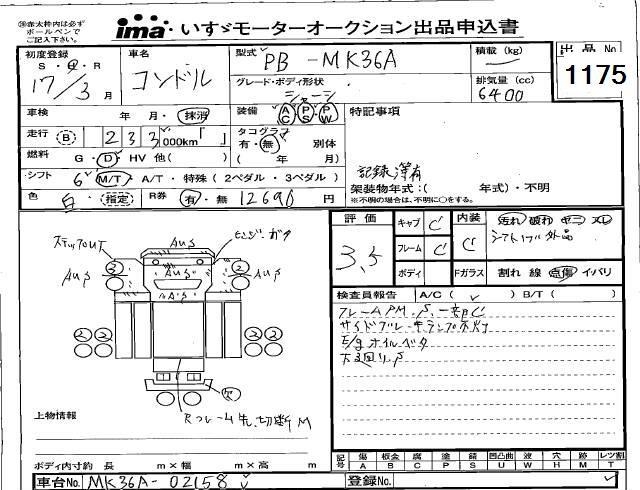 ※赤太枠内は必ず
ボールペンで
ご記入下さい。
ima いすゞモーターオークション出品申込書
初度登録 S・H・R 17/3月
車名 コンドル
型式 PB-MK36A
グレード・ボディ形状 シャーシ
積載 (kg)
排気量 (cc) 6400
出品 No 1175
車検 年 月・抹消
装備 AC PS PW
特記事項
走行 (B) 233,000km「 」
タコグラフ 有・無 別体
( 年 月)
燃料 G・D・HV 他( )
シフト 6 M/T・A/T・特殊(2ペダル・3ペダル)
記録簿有
架装物年式:( 年式)・不明
※不明の場合は、不明に○をする。
色 白 (指定) R券 有・無 12690円
評価 3.5
キャブ C
フレーム C
ボディ
内装 C
汚れ 破れ
シフトノブ外品
Fガラス 割れ 線 点傷 イバリ
検査員報告 A/C( ) B/T( )
フレームAPM.S.一部C
サイドブレーキランプ不灯
E/gオイルベタ
下廻りS
ステップUT
AUS
AUS
AUS
AUS
A's
2
2
2
2
2
2
Rフレーム先切断M
上物情報
ボディ内寸約 長 m×幅 m×高 m
記号 傷A 板金B 腐C 塗P 錆S 凹凸曲U 波W 穴H 跡M レツ割T
車台No. MK36A-02158
登録No.